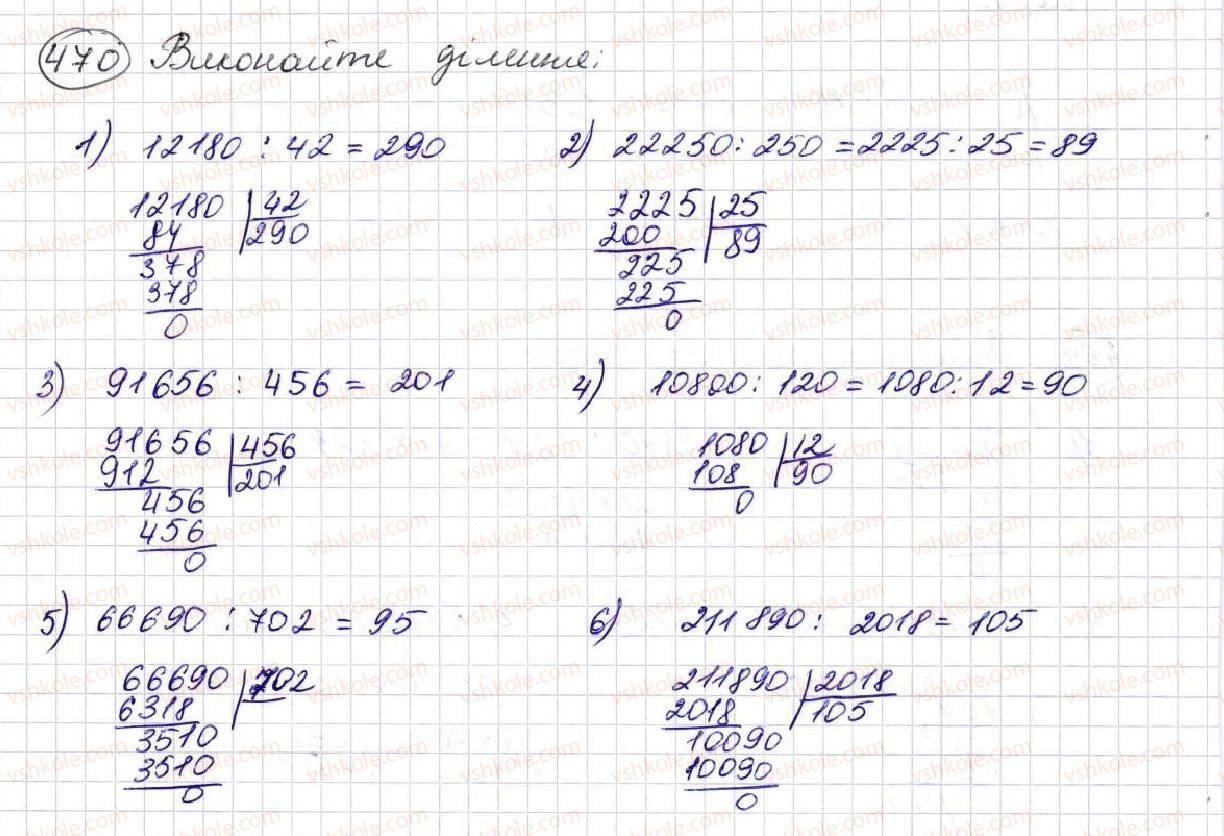 470 Виконайте ділення:
1) 12180 : 42 = 290
12180 42
84 290
378
378
0
2) 22250 : 250 = 2225 : 25 = 89
2225 25
200 89
225
225
0
3) 91656 : 456 = 201
91656 456
912 201
456
456
0
4) 10800 : 120 = 1080 : 12 = 90
1080 12
108 90
0
5) 66690 : 702 = 95
66690 702
6318
3510
3510
0
6) 211890 : 2018 = 105
211890 2018
2018 105
10090
10090
0
vshkole.com